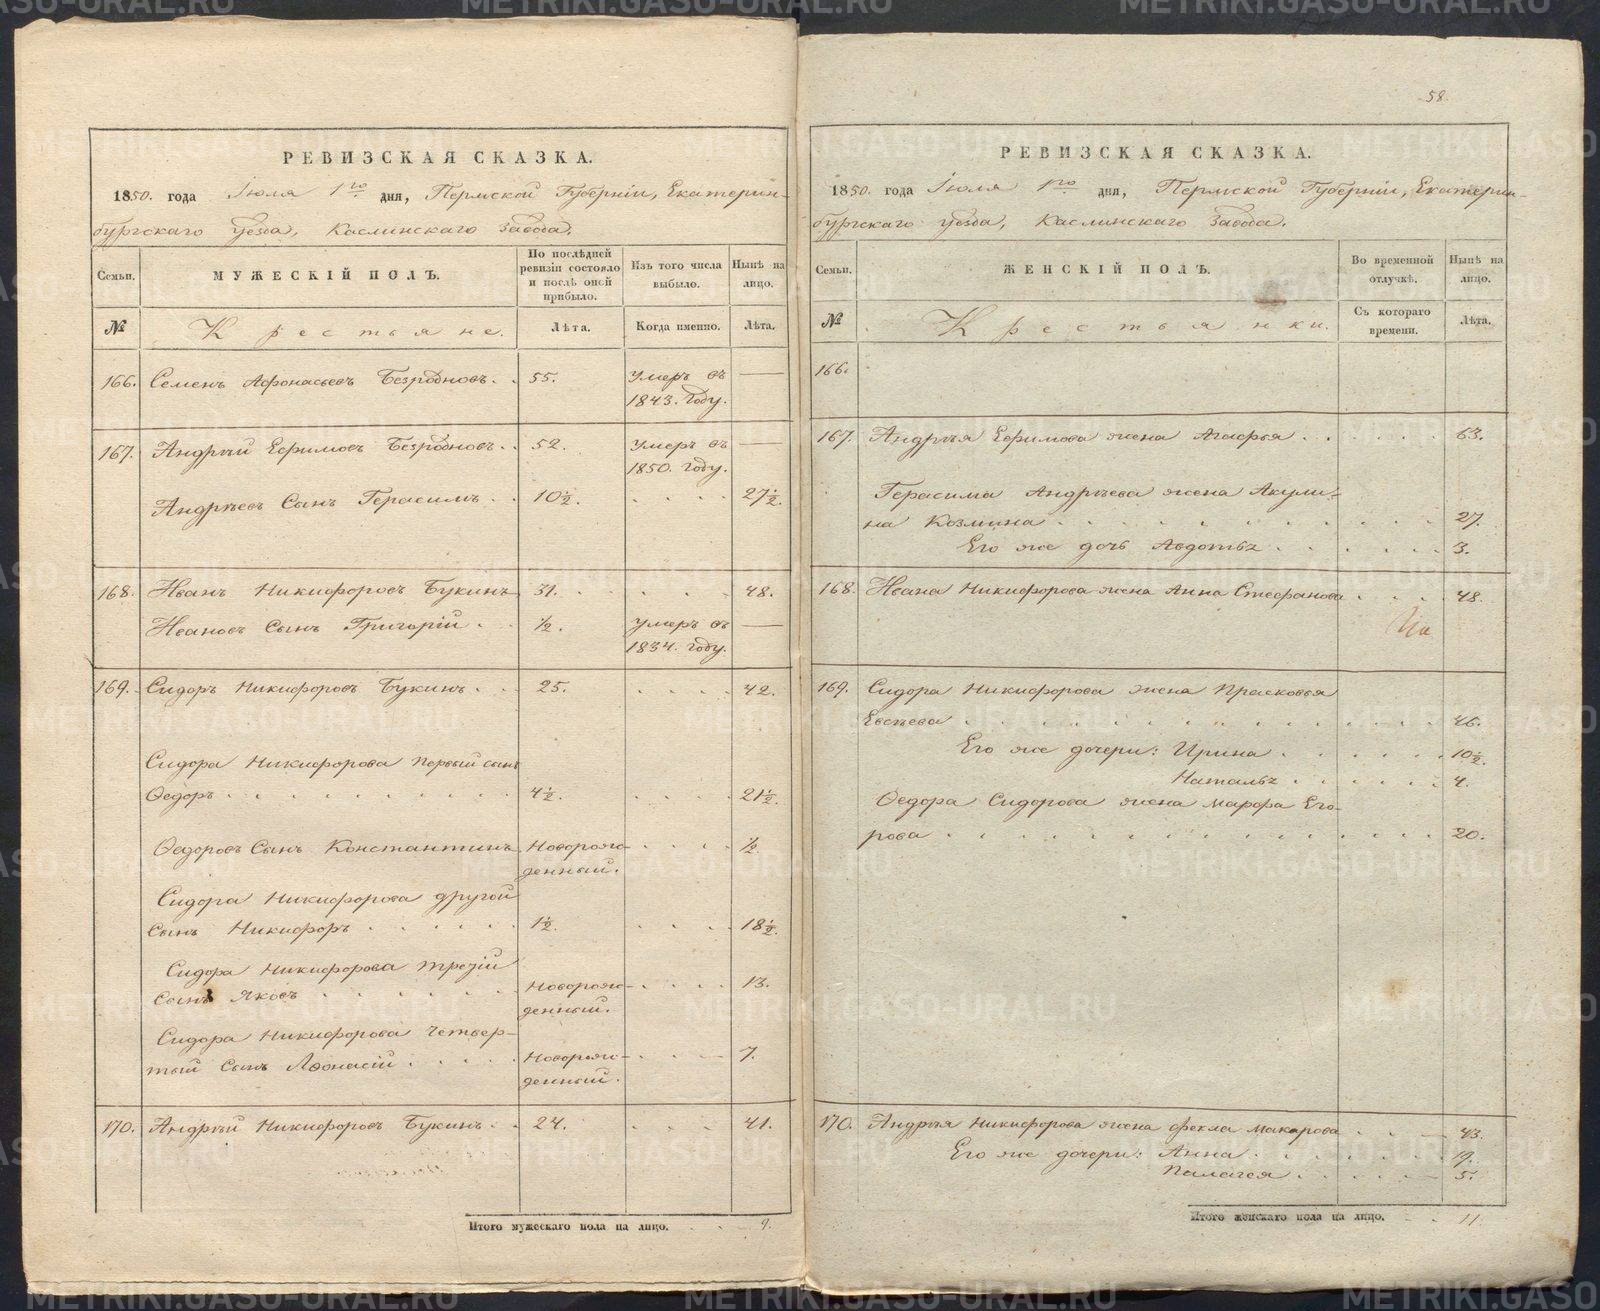 58.
РЕВИЗСКАЯ СКАЗКА.
1850. года Іюля 1го дня, Пермской Губерніи, Екатерин-
бургскаго уѣзда, Каслинскаго Завода.
Семьи.
МУЖЕСКІЙ ПОЛЪ.
По послѣдней ревизіи состояло и послѣ оной прибыло.
Изъ того числа выбыло.
Нынѣ на лицо.
№
Крестьяне.
Лѣта.
Когда именно.
Лѣта.
166. Семенъ Афонасьевъ Безродновъ. . 55. Умеръ въ —
1843. Году.
167. Андрѣй Ефимовъ Безродновъ. . 52. Умеръ въ —
1850. году.
Андрѣевъ Сынъ Герасимъ. . 10½. . . . . 27½.
168. Иванъ Никифоровъ Букинъ 31. . . . . 48.
Ивановъ Сынъ Григорій . . ½. Умеръ въ —
1834. Году.
169. Сидоръ Никифоровъ Букинъ. . . 25. . . . . 42.
Сидора Никифорова первый сынъ
Ѳедоръ. . . . . . . . . . 4½. . . . . 21½.
Ѳедоровъ Сынъ Константинъ. Новорож- . . . . ½.
денный.
Сидора Никифорова другой
Сынъ Никифоръ . . . . . . 1½. . . . . 18½.
Сидора Никифорова третій
Сынъ Яковъ . . . . . . . Новорож- . . . . 13.
денный.
Сидора Никифорова четвер-
тый Сынъ Афонасій . . . . . Новорож- . . . 7.
денный.
170. Андрѣй Никифоровъ Букинъ. . . 24. . . . . 41.
Итого мужескаго пола на лицо. . . 9.
РЕВИЗСКАЯ СКАЗКА.
1850. года Іюля 1го дня, Пермской Губерніи, Екатерин-
бургскаго уѣзда, Каслинскаго Завода.
Семьи.
ЖЕНСКІЙ ПОЛЪ.
Во временной отлучкѣ.
Нынѣ на лицо.
№
Крестьянки.
Съ котораго времени.
Лѣта.
166.
167. Андрѣя Ефимова жена Агафья . . . . . . . 63.
Герасима Андрѣева жена Акули-
на Козмина . . . . . . . . . . . . . 27.
Его же дочь Авдотья . . . . . . . 3.
168. Ивана Никифорова жена Анна Стефанова . . . . 48.
169. Сидора Никифорова жена Прасковья
Евсѣева . . . . . . . . . . . . . . . 46.
Его же дочери: Ирина . . . . . . . 10½.
Наталья . . . . . . 4.
Ѳедора Сидорова жена Марфа Его-
рова . . . . . . . . . . . . . . . 20.
170. Андрѣя Никифорова жена Фекла Макарова . . . — 43.
Его же дочери: Анна . . . . . . . . 19.
Палагея . . . . . . 5.
Итого женскаго пола на лицо. . . 11.
METRIKI.GASO-URAL.RU